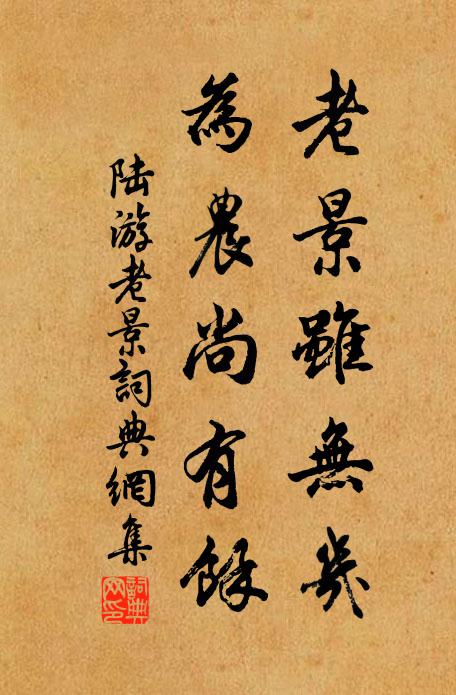 老景雖無幾
為農尚有餘
陆游老景詞典網集
詞典网印